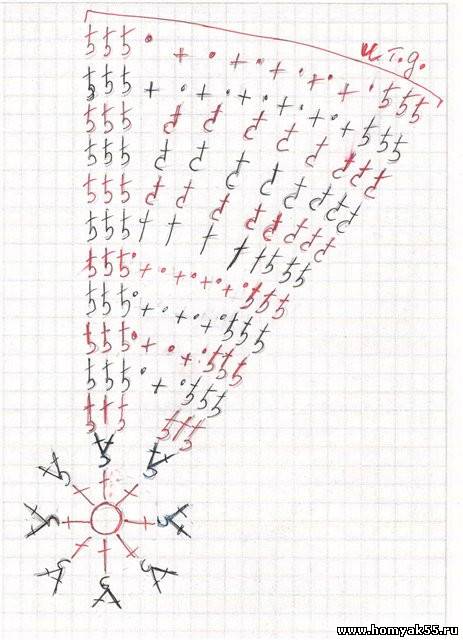 и.т.д.
www.homyak55.ru